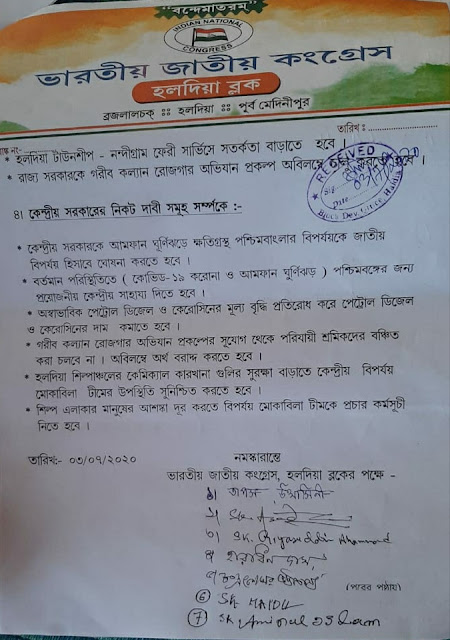 "বন্দেমাতরম্"
INDIAN NATIONAL
CONGRESS
ভারতীয় জাতীয় কংগ্রেস
হলদিয়া ব্লক
ব্রজলালচক্ :: হলদিয়া :: পূর্ব মেদিনীপুর
তারিখ :
* হলদিয়া টাউনশীপ - নন্দীগ্রাম ফেরী সার্ভিসে সতর্কতা বাড়াতে হবে ।
* রাজ্য সরকারকে গরীব কল্যান রোজগার অভিযান প্রকল্প অবিলম্বে
RECEIVED
৪। কেন্দ্রীয় সরকারের নিকট দাবী সমুহ সম্পর্কে :-
* কেন্দ্রীয় সরকারকে আমফান ঘুর্ণিঝড়ে ক্ষতিগ্রস্থ পশ্চিমবাংলার বিপর্যয়কে জাতীয়
বিপর্যয় হিসাবে ঘোষনা করতে হবে ।
* বর্তমান পরিস্থিতিতে ( কোভিড-১৯ করোনা ও আমফান ঘুর্ণিঝড় ) পশ্চিমবঙ্গের জন্য
প্রয়োজনীয় কেন্দ্রীয় সাহায্য দিতে হবে ।
* অস্বাভাবিক পেট্রোল ডিজেল ও কেরোসিনের মুল্য বৃদ্ধি প্রতিরোধ করে পেট্রোল ডিজেল
ও কেরোসিনের দাম কমাতে হবে ।
* গরীব কল্যান রোজগার অভিযান প্রকল্পের সুযোগ থেকে পরিযায়ী শ্রমিকদের বঞ্চিত
করা চলবে না । অবিলম্বে অর্থ বরাদ্দ করতে হবে ।
* হলদিয়া শিল্পাঞ্চলের কেমিক্যাল কারখানা গুলির সুরক্ষা বাড়াতে কেন্দ্রীয় বিপর্যয়
মোকাবিলা টীমের উপস্থিতি সুনিশ্চিত করতে হবে ।
* শিল্প এলাকার মানুষের আশঙ্কা দূর করতে বিপর্যয় মোকাবিলা টীমকে প্রচার কর্মসূচী
নিতে হবে ।
তারিখ:- ০৩/০৭/২০২০
নমস্কারান্তে
ভারতীয় জাতীয় কংগ্রেস, হলদিয়া ব্লকের পক্ষে -
(পরের পৃষ্ঠায়)
⑥ SK
⑦ SK